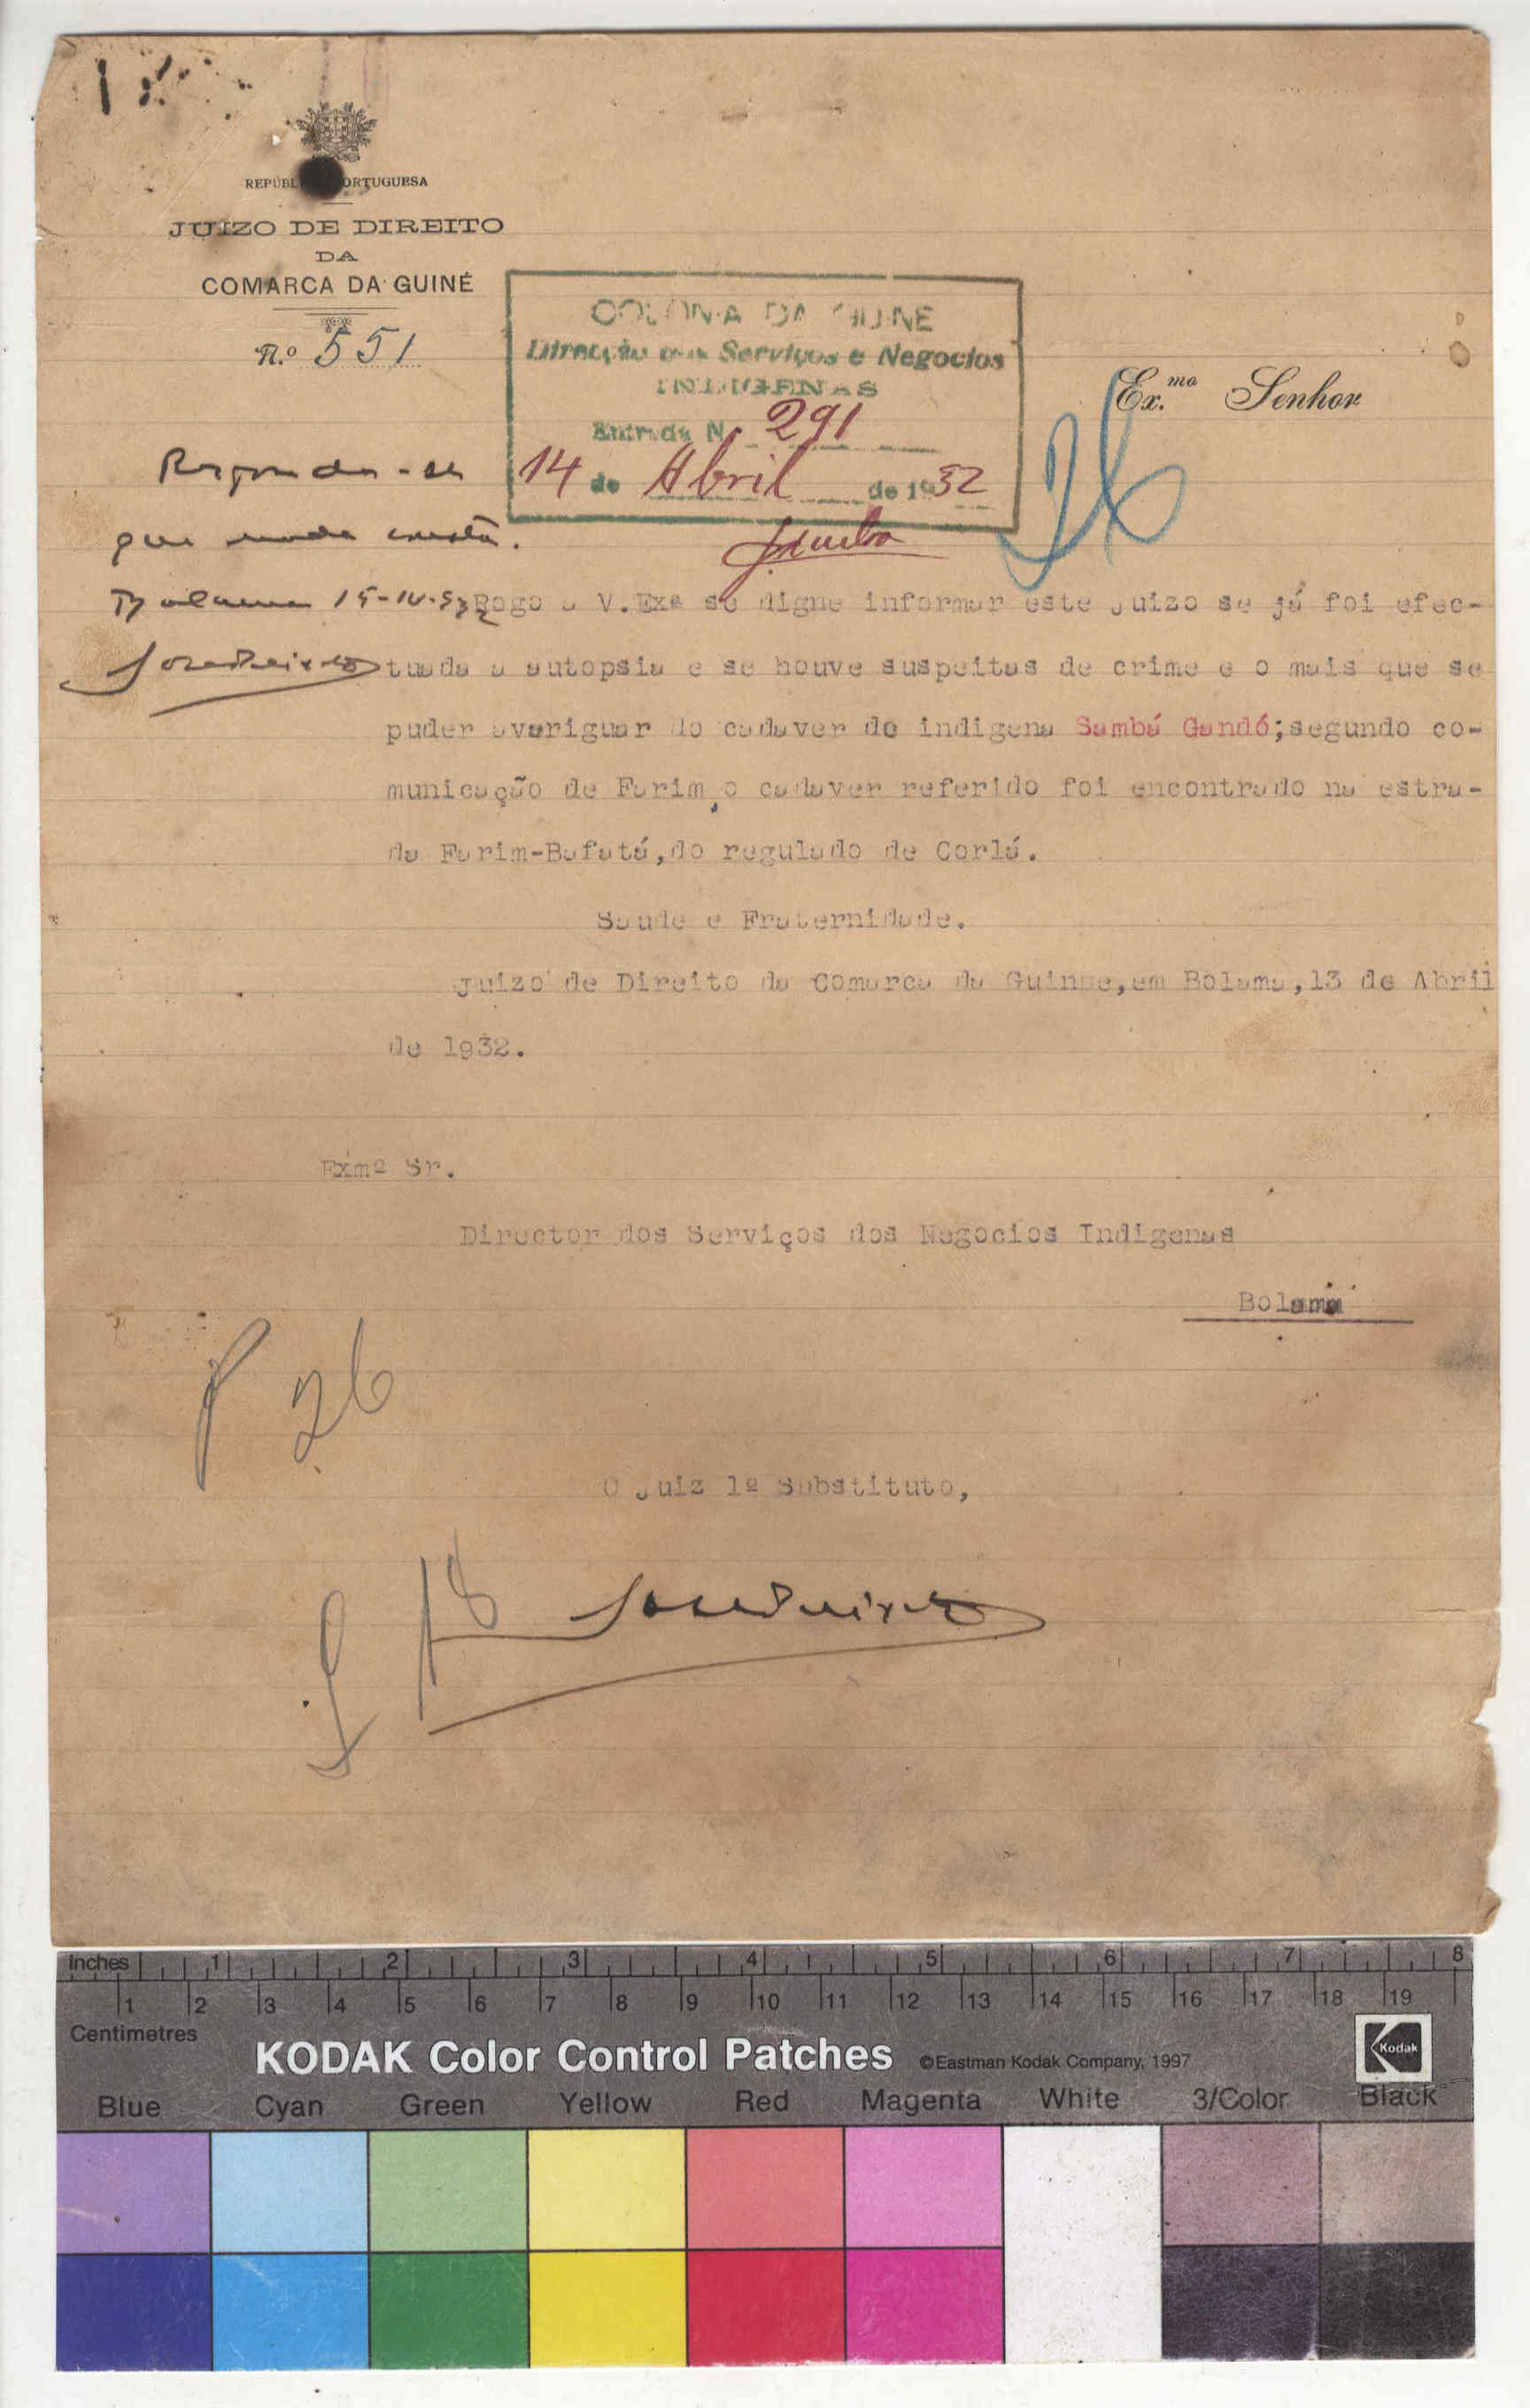 REPÚBL ORTUGUESA
JUIZO DE DIREITO
DA
COMARCA DA GUINÉ
N.º 551
COLONIA DA GUINE
Direcção dos Serviços e Negocios
INDIGENAS
Entrada N. 291
14 de Abril de 1932
Ex.mo Senhor
26
Responda-se
que nada consta.
Bolama 15-IV-32
Rogo a V.Exª se digne informar este Juizo se já foi efec-
tuada a autopsia e se houve suspeitas de crime e o mais que se
puder averiguar do cadaver do indigena Sambá Gandó;segundo co-
municação de Farim,o cadaver referido foi encontrado na estra-
da Farim-Bafatá,do regulado de Corlá.
Saude e Fraternidade.
Juizo de Direito da Comarca da Guinee,em Bolama,13 de Abril
de 1932.
Exmº Sr.
Director dos Serviços dos Negocios Indigenas
Bolama
P 26
O Juiz 1º Substituto,
Inches 1 2 3 4 5 6 7 8
1 2 3 4 5 6 7 8 9 10 11 12 13 14 15 16 17 18 19
Centimetres
KODAK Color Control Patches ©Eastman Kodak Company, 1997 Kodak
Blue Cyan Green Yellow Red Magenta White 3/Color Black